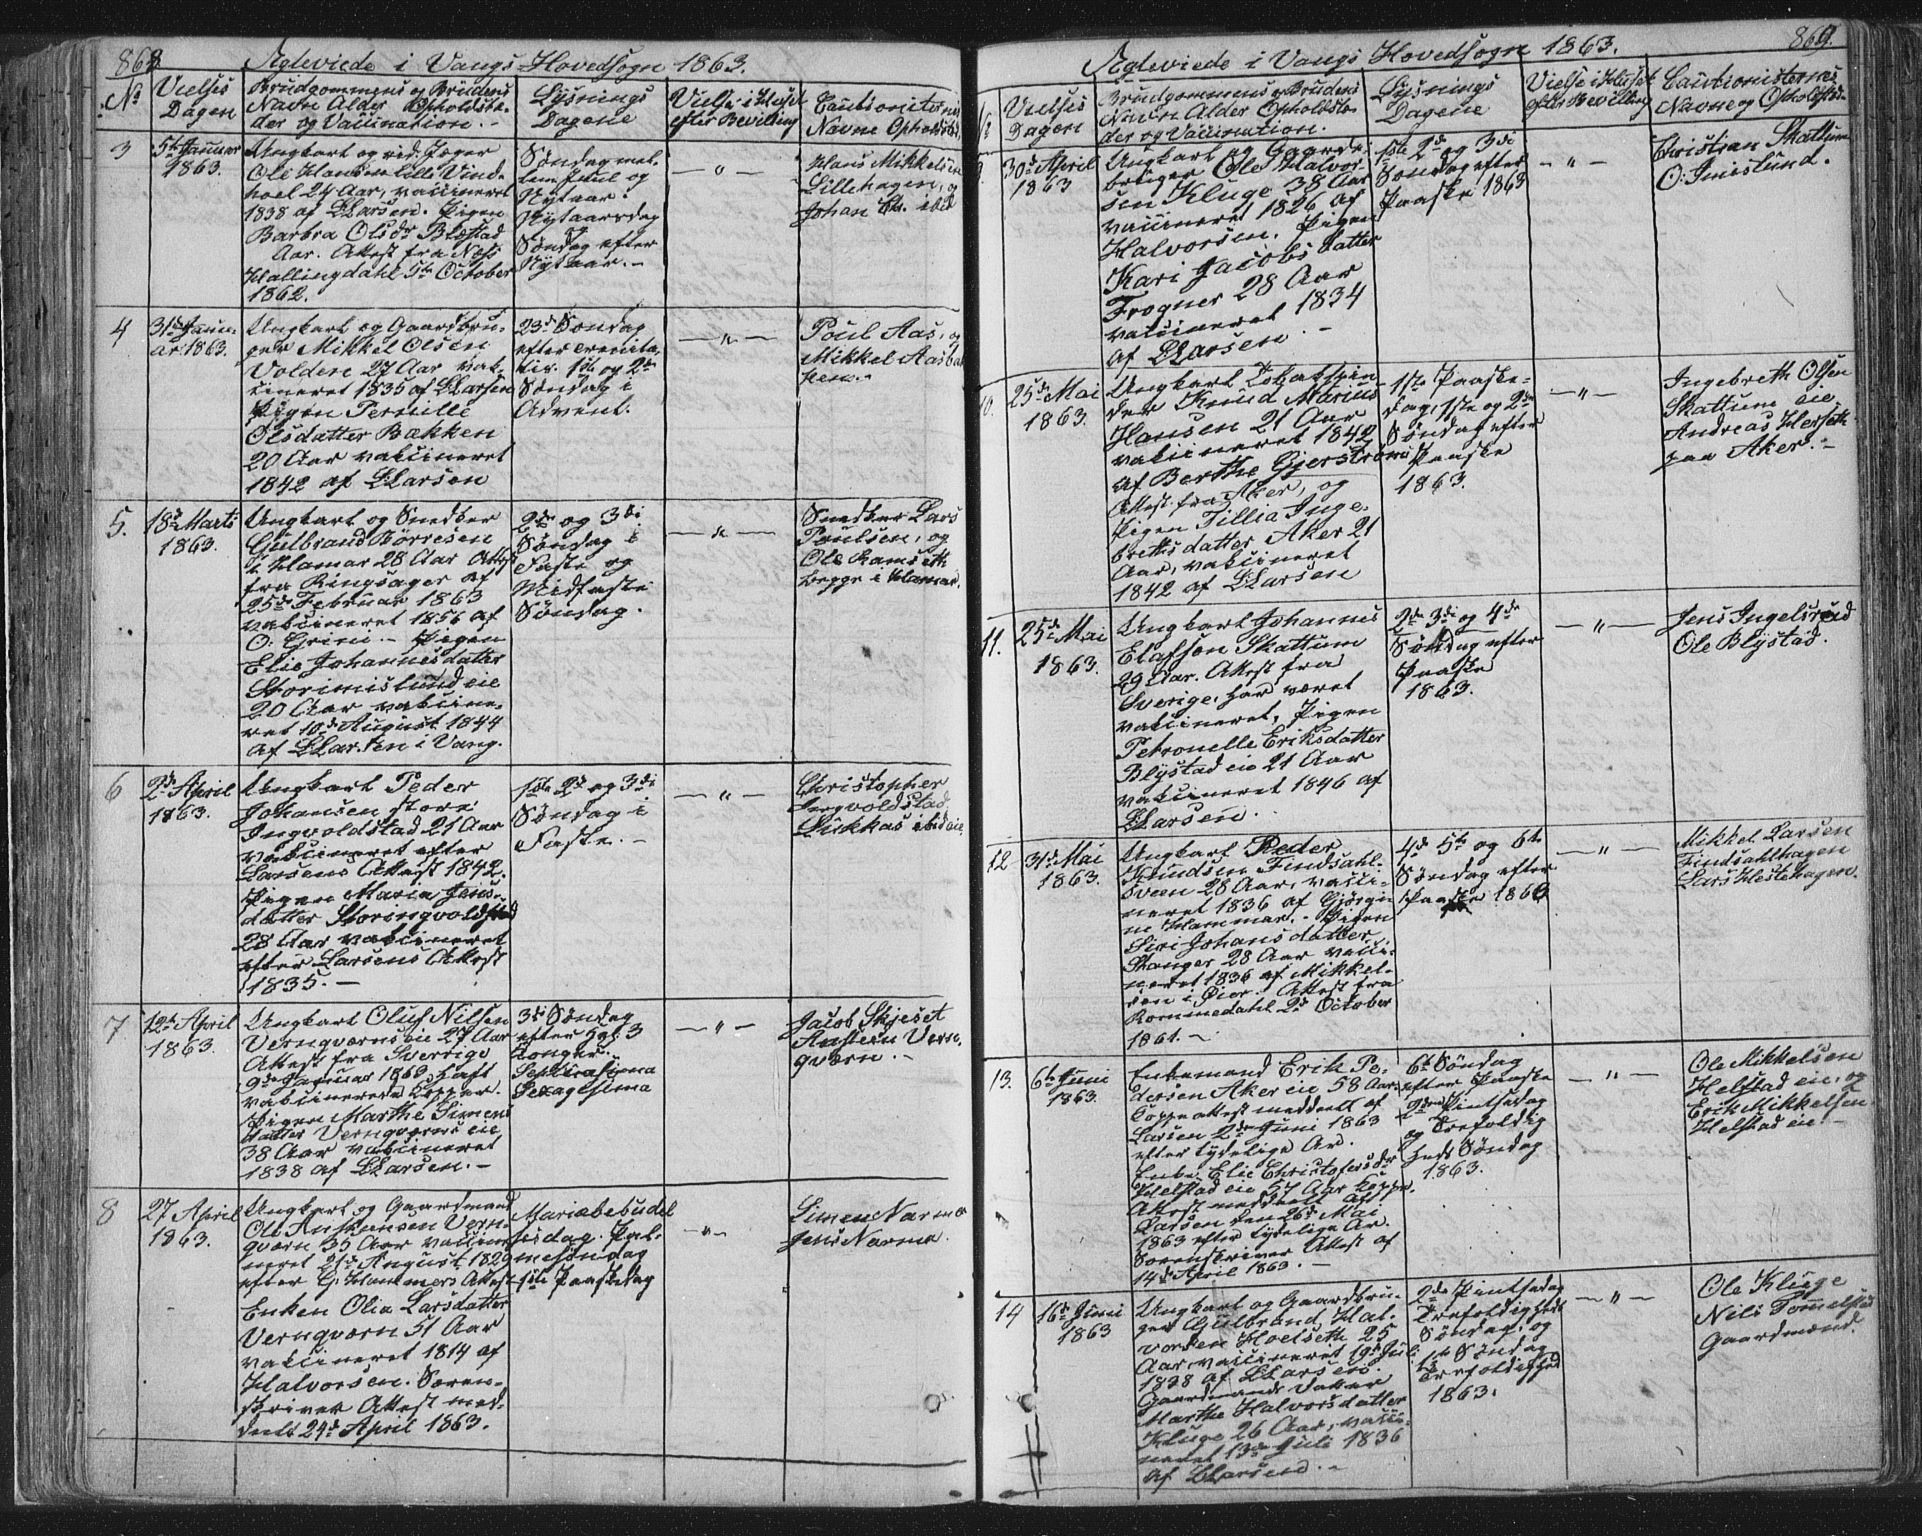 868
Ægteviede i Vangs Hovedsogn 1863.
No
Vielses Dagen
Brudgommens og Brudens
Navn Alder Opholdste-
der og Vaccination.
Lysnings
Dagene
Vielse i Huset
efter Bevilling
Cautionisternes
Navne Opholdsted
3
5te Januar
1863.
Ungkarl og rid. Jæger
Ole Hansen Lille Vind-
hoel 24 Aar, vaccineret
1838 af L Larsen. Pigen
Barbra Olsdr Blæstad
Aar. Attest fra Næss
Hallingdahl 5te October
1862.
Søndag mel-
lem Juul og
Nytaar.
Nytaarsdag
Søndag efter
Nytaar.
— " —
Hans Mikkelsen
Lillehagen, og
Johan Chr. ibid
4
31te Janu-
ar 1863.
Ungkarl og Gaardbru-
ger Mikkel Olsen
Volden 27 Aar vac-
cineret 1835 af L Larsen
Pigen Pernille
Olsdatter Bakken
20 Aar vaccineret
1842 af L Larsen
23de Søndag
efter trenita-
tis. 1ste og 2den
Søndag i
Advent.
— " —
Poul Aas, og
Mikkel Aasbak-
ken.
5.
18de Marts
1863.
Ungkarl og Snedker
Gulbrand Børresen
i Hamar 28 Aar Attest
fra Ringsager af
25de Februar 1863
vaccineret 1856 af
O. Grini. — Pigen
Elie Johannesdatter
Storimislund eie
20 Aar vaccine-
ret 10de August 1844
af L Larsen i Vang.
2den og 3die
Søndag i
Faste og
Midfaste
Søndag.
— " —
Snedker Lars
Poulsen, og
Ole Ramseth
begge i Hamar.
6
2den April
1863.
Ungkarl Peder
Johansen store
Ingvoldstad 21 Aar
vaccineret efter
Larsens Attest 1842.
Pigen Maria Jens-
datter Storengvoldstad
28 Aar vaccineret
efter Larsens Attest
1835. —
1ste 2den og 3die
Søndag i
Faste. —
— " —
Christopher
Ingvoldstad
Lukkas ibid eie
7
12te April
1863.
Ungkarl Oluf Nilsen
Verngværns eie 27 Aar
Attest fra Sverrige
9de Januar 1863 haft
vaccinerede Kopper.
Pigen Marthe Simens
datter Verngværns eie
38 Aar vaccineret
1838 af L Larsen. —
3die Søndag
efter Hel. 3
Konger.
Septuagesima
Sexagesima
— " —
Jacob Skjeset
Anstein Vern-
gværn. —
8
27 April
1863.
Ungkarl og Gaardmand
Ole Anthunsen Vern-
gværn 35 Aar vaccine
neret 21de August 1829
efter G. Hammers Attest
Enken Olia Larsdatter
Verngværn 51 Aar
vaccineret 1814 af
Halvorsen. Soren-
skriver Attest med-
delt 24de April 1863.
Mariæbebudel
sesdag. Pal-
mesøndag
1ste Paaskedag
— " —
Simen Narmo
Jens Narmo.
869.
Ægteviede i Vangs Hovedsogn 1863.
No
Vielses
Dagen
Brudgommens og Brudens
Navn Alder Opholdste-
der og Vaccination.
Lysnings
Dagene
Vielse i Huset
efter Bevilling
Cautionisternes
Navne og Opholdste-
9
30te April
1863
Ungkarl og Gaard-
bruger Ole Halvor-
sen Kluge 38 Aar
vaccineret 1826 af
Halvorsen. Pigen
Kari Jacobsdatter
Frogner 28 Aar
vaccineret 1834
af L Larsen —
1ste 2den og 3die
Søndag efter
Paaske 1863
— " —
Christian Skattum
O. Imislund.
10.
25de Mai
1863.
Ungkarl
der Knud Marius
Hansen 21 Aar
vaccineret 1842
af Berthe Gjerstrøm
Attest fra Aker, og
Pigen Tillia Inge-
brethsdatter Aker 21
Aar, vaccineret
1842 af L Larsen
1ste Paaske-
dag, 1ste og 2den
Søndag efter
Paaske
1863.
— " —
Ingebreth Olsen
Skattum eie
Andreas Herseth
paa Aker. —
11.
25de Mai
1863.
Ungkarl Johannes
Elafson Skattum
29 Aar. Attest fra
Sverige, har været
vaccineret, Pigen
Petronelle Eriksdatter
Blystad eie 21 Aar
vaccineret 1846 af
L Larsen.
2den 3die og 4de
Søndag efter
Paaske
1863.
— " —
Jens Ingelsrud
Ole Blystad.
12
31te Mai
1863.
Ungkarl Peder
Knudsen Findsahl-
sveen 28 Aar, vacci-
neret 1836 af Gjörgi-
ne Hammar. — Pigen
Siri Johansdatter
Stanger 28 Aar vacci-
neret 1836 af Mikkel-
sen i Øier. Attest fra
Rommedahl 2den October
1861. —
4de 5te og 6te
Søndag efter
Paaske 1863
— " —
Mikkel Larsen
Findsahlhagen
Lars Hestehagen
13.
6te Juni
1863.
Enkemand Erik Pe-
dersen Aker eie 58 Aar
Koppeattest meddelt af
Larsen 2den Juni 1863
efter tydelige Ar.
Enke Elie Christofersdr
Helstad eie 57 Aar koppe-
Attest meddelt af
Larsen den 26de Mai
1863 efter tydelige Ar.
Sorenskriver Attest af
14de April 1863. —
6te Søndag
efter Paaske
2den Pintsedag
og Trefoldig
heds Søndag
1863.
— " —
Ole Mikkelsen
Helstad eie, og
Erik Mikkelsen
Helstad eie —
14
16de Juni
1863
Ungkarl og Gaardbru-
ger Gulbrand Hal-
vorsen Hoelseth 25
Aar, vaccineret 19de Juli
1838 af L Larsen.
Gaardmands Datter
Marthe Halvorsdatter
Kluge 26 Aar, vacci-
neret 13de Juli 1836
af L Larsen. —
2den Pintsedag
Trefoldigheds
Søndag, og
1ste Søndag
e Trefoldighed
1863.
— " —
Ole Kluge
Nils Tommelstad
Gaardmænd.